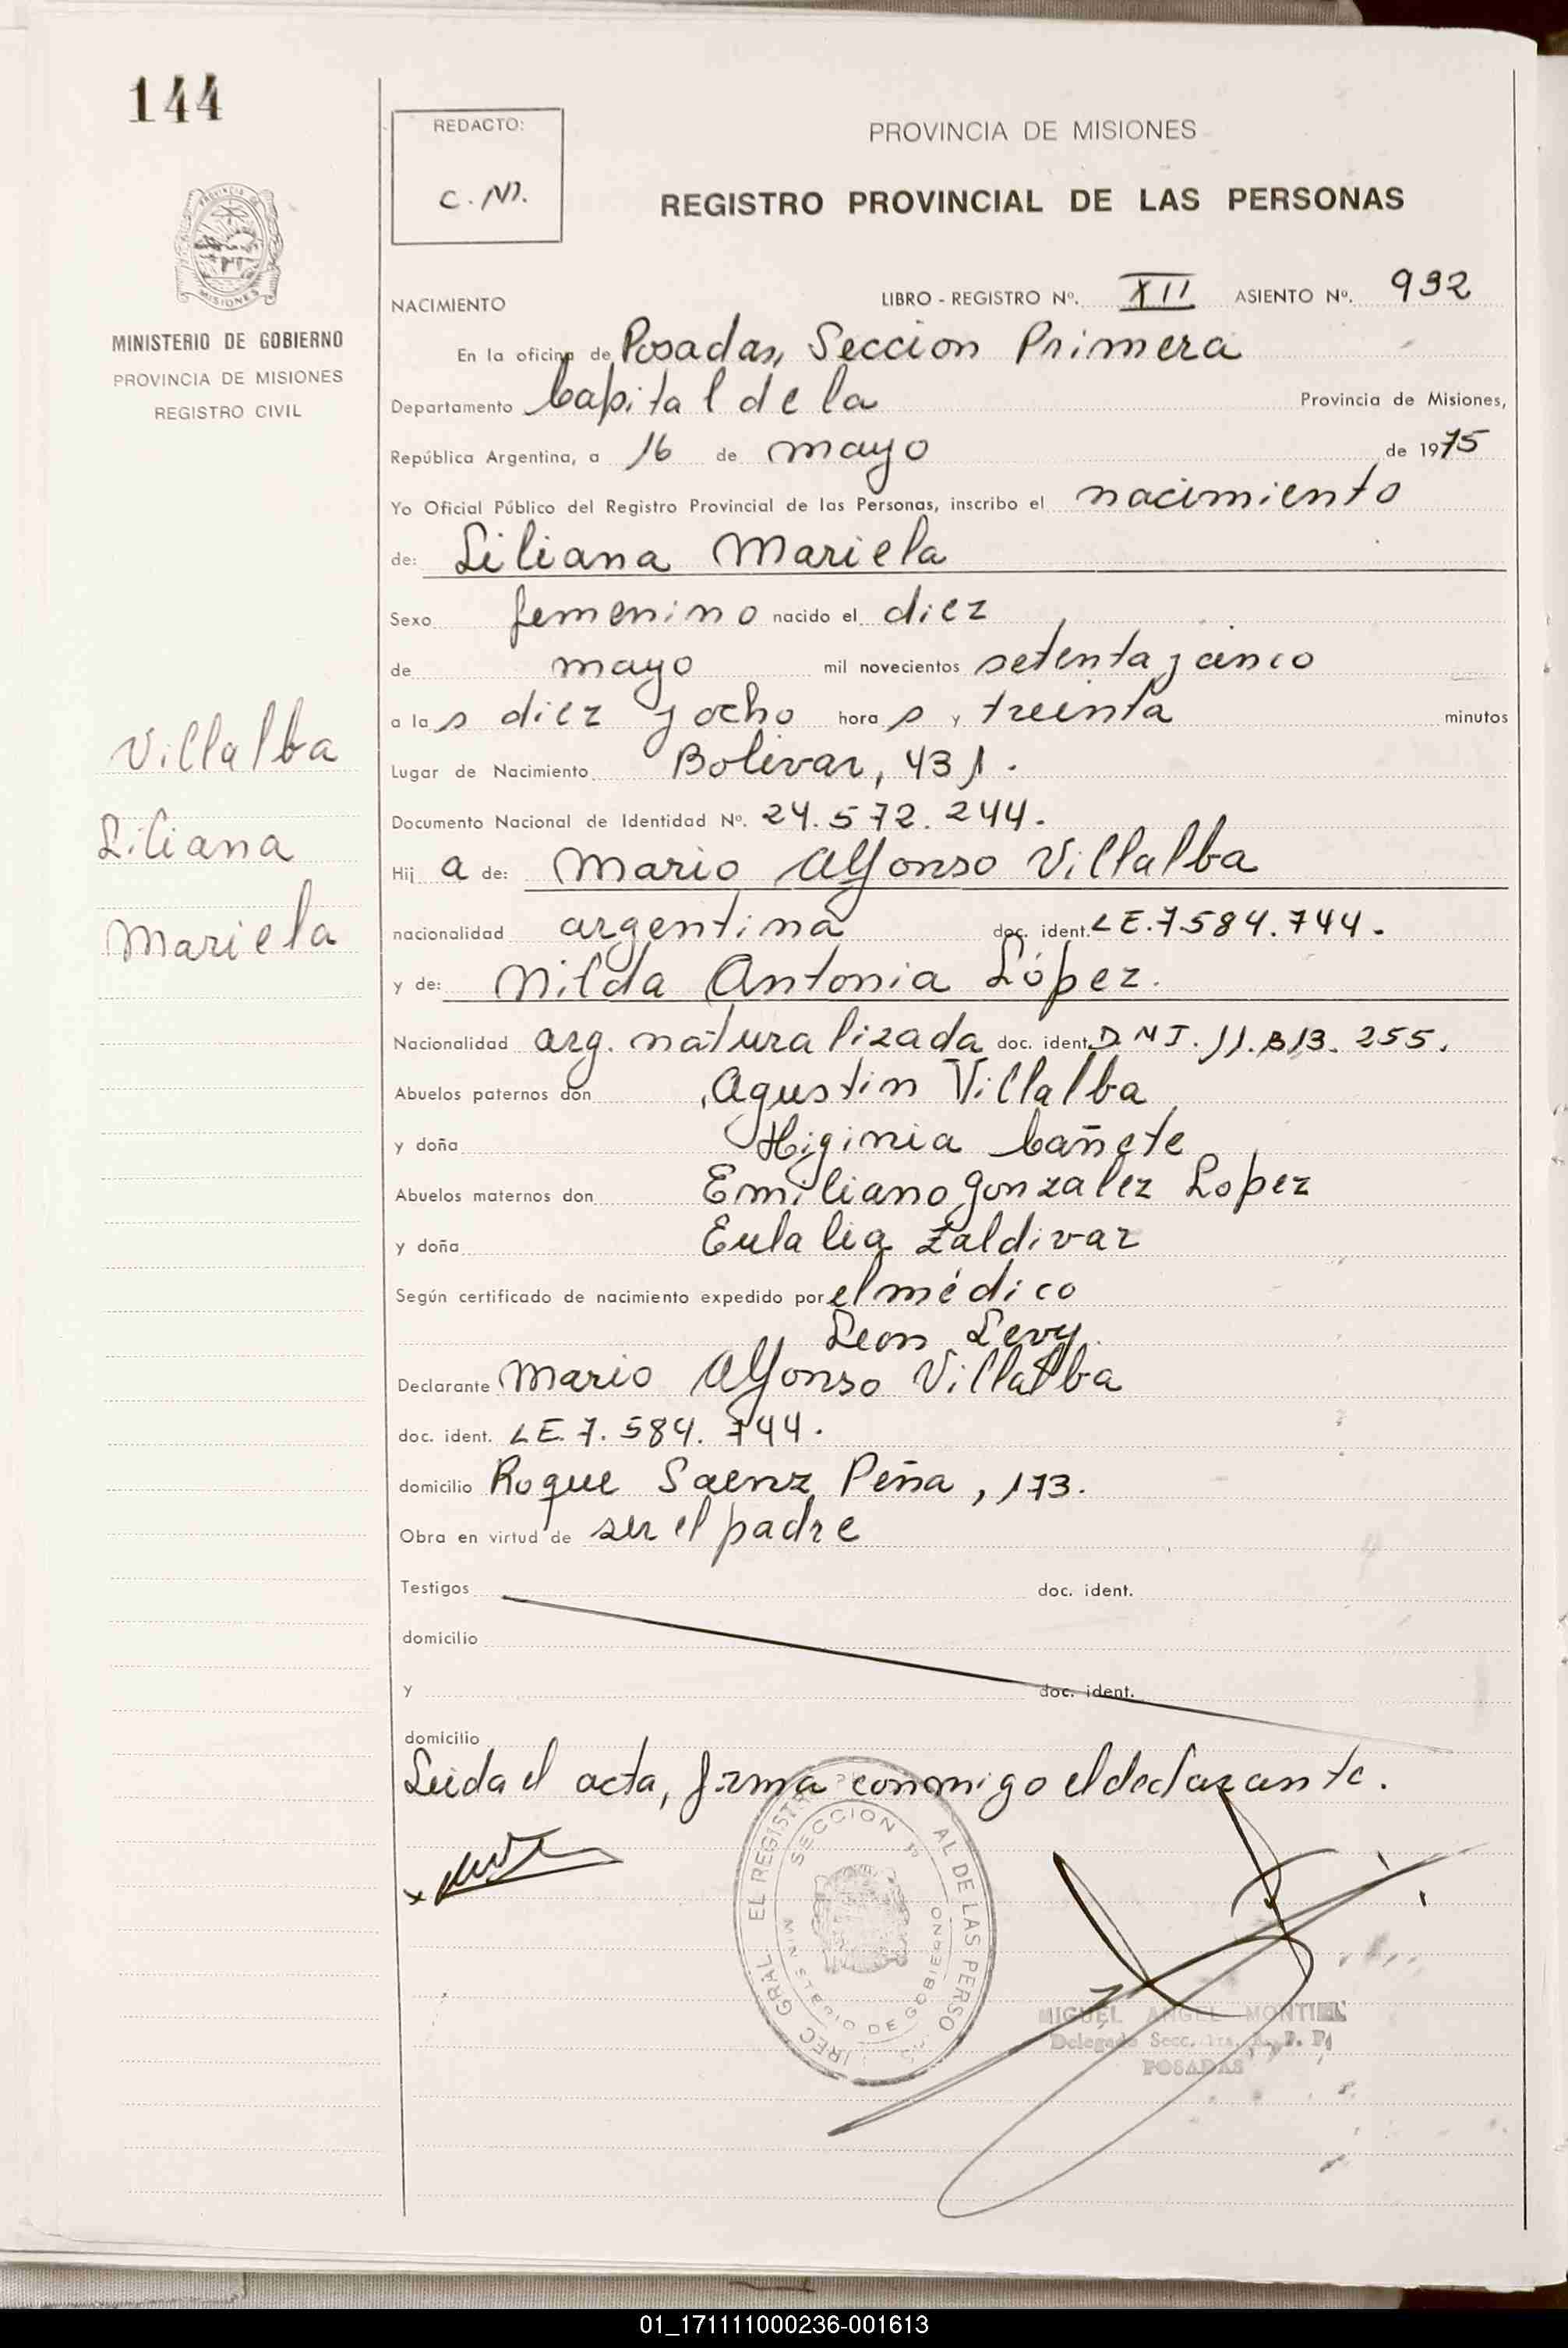 144
MINISTERIO DE GOBIERNO
PROVINCIA DE MISIONES
REGISTRO CIVIL
Villalba
Liliana
Mariela
REDACTO:
C.N.
PROVINCIA DE MISIONES
REGISTRO PROVINCIAL DE LAS PERSONAS
NACIMIENTO LIBRO - REGISTRO Nº. XII ASIENTO Nº. 932
En la oficina de Posadas, Seccion Primera
Departamento Capital de la Provincia de Misiones,
República Argentina, a 16 de mayo de 1975
Yo Oficial Público del Registro Provincial de las Personas, inscribo el nacimiento
de: Liliana Mariela
Sexo femenino nacido el diez
de mayo mil novecientos setenta y cinco
a las diez y ocho horas y treinta minutos
Lugar de Nacimiento Bolivar, 431.
Documento Nacional de Identidad Nº. 24.572.244.
Hij a de: Mario Alfonso Villalba
nacionalidad argentina doc. ident. LE.7.584.744.
y de: Nilda Antonia López.
Nacionalidad arg. naturalizada doc. ident. DNI. 11.813.255.
Abuelos paternos don Agustin Villalba
y doña Higinia Cañete
Abuelos maternos don Emiliano Gonzalez Lopez
y doña Eulalia Zaldivar
Según certificado de nacimiento expedido por el médico
Leon Levy.
Declarante Mario Alfonso Villalba
doc. ident. LE. 7.584.744.
domicilio Roque Saenz Peña, 173.
Obra en virtud de ser el padre
Testigos doc. ident.
domicilio
y doc. ident.
domicilio
Leida el acta, firma conmigo el declarante.
SECCION 1º
MINISTERIO DE GOBIERNO
MIGUEL ANGEL MONTIEL
Delegado Secc. 1ra. R. P. P.
POSADAS
01_171111000236-001613